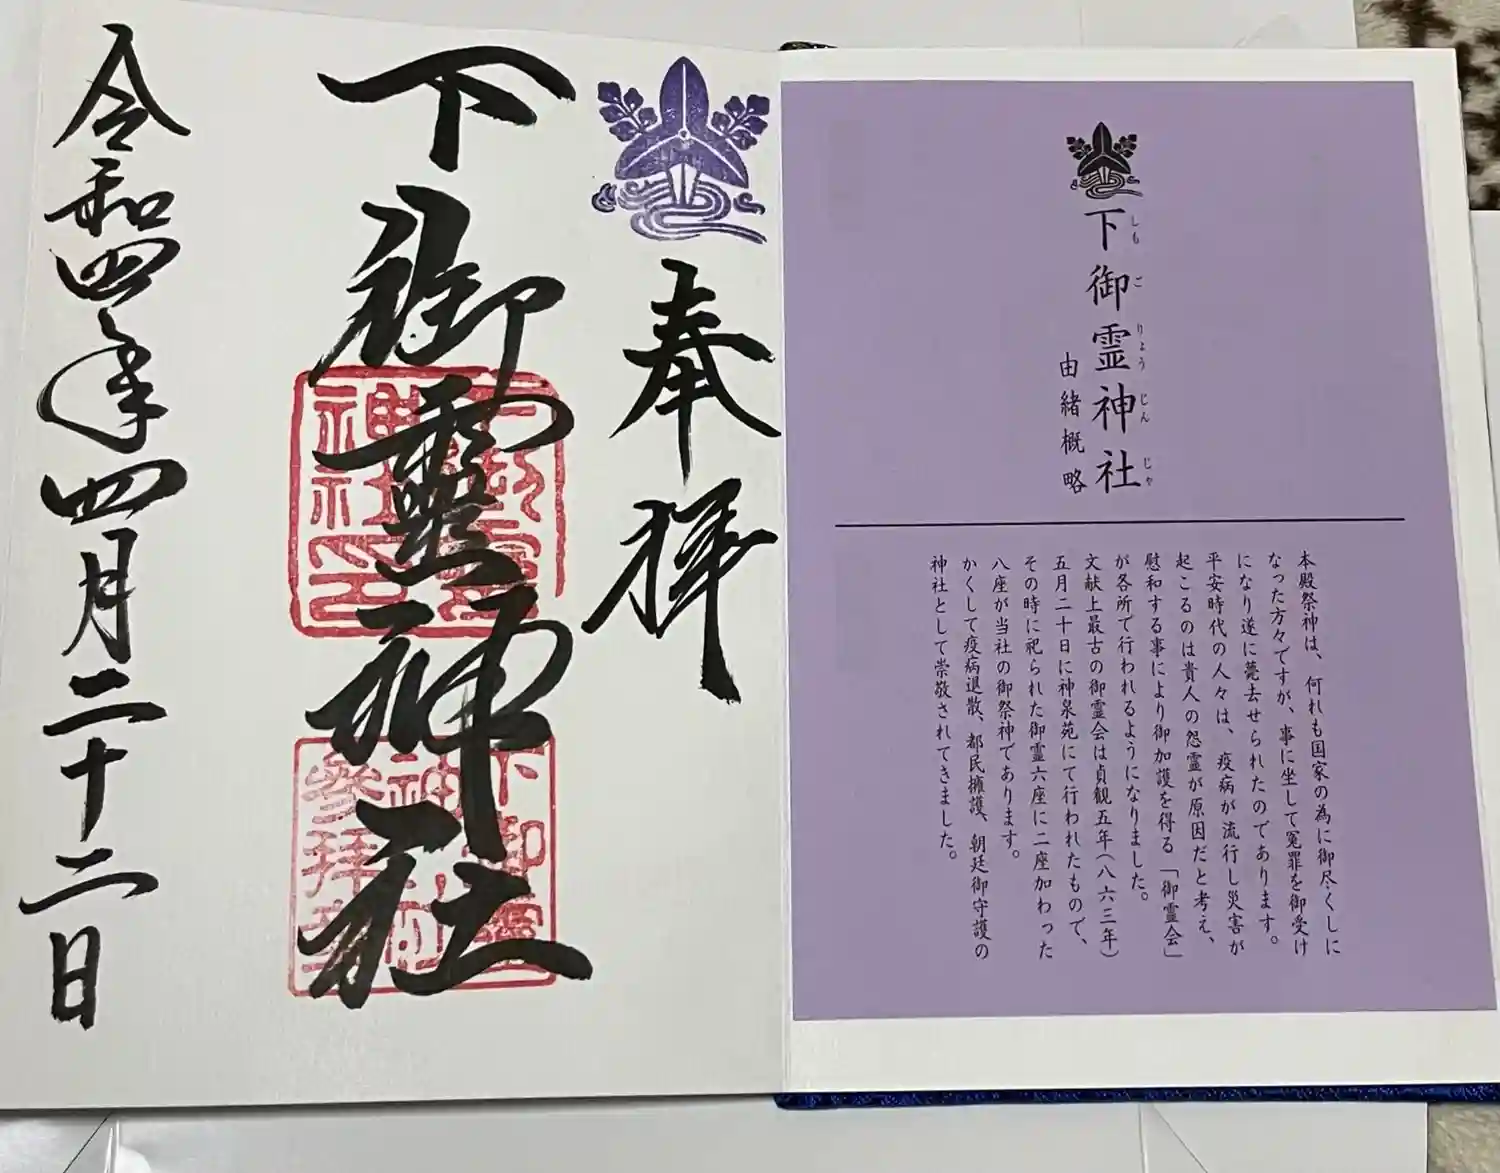 下御霊神社
しもごりょうじんじゃ
由緒概略
本殿祭神は、何れも国家の為に御尽くしに
なった方々ですが、事に坐して冤罪を御受け
になり遂に薨去せられたのであります。
平安時代の人々は、疫病が流行し災害が
起こるのは貴人の怨霊が原因だと考え、
慰和する事により御加護を得る「御霊会」
が各所で行われるようになりました。
文献上最古の御霊会は貞観五年(八六三年)
五月二十日に神泉苑にて行われたもので、
その時に祀られた御霊六座に二座加わった
八座が当社の御祭神であります。
かくして疫病退散、都民擁護、朝廷御守護の
神社として崇敬されてきました。
奉拝
下御靈神社
令和四年四月二十二日